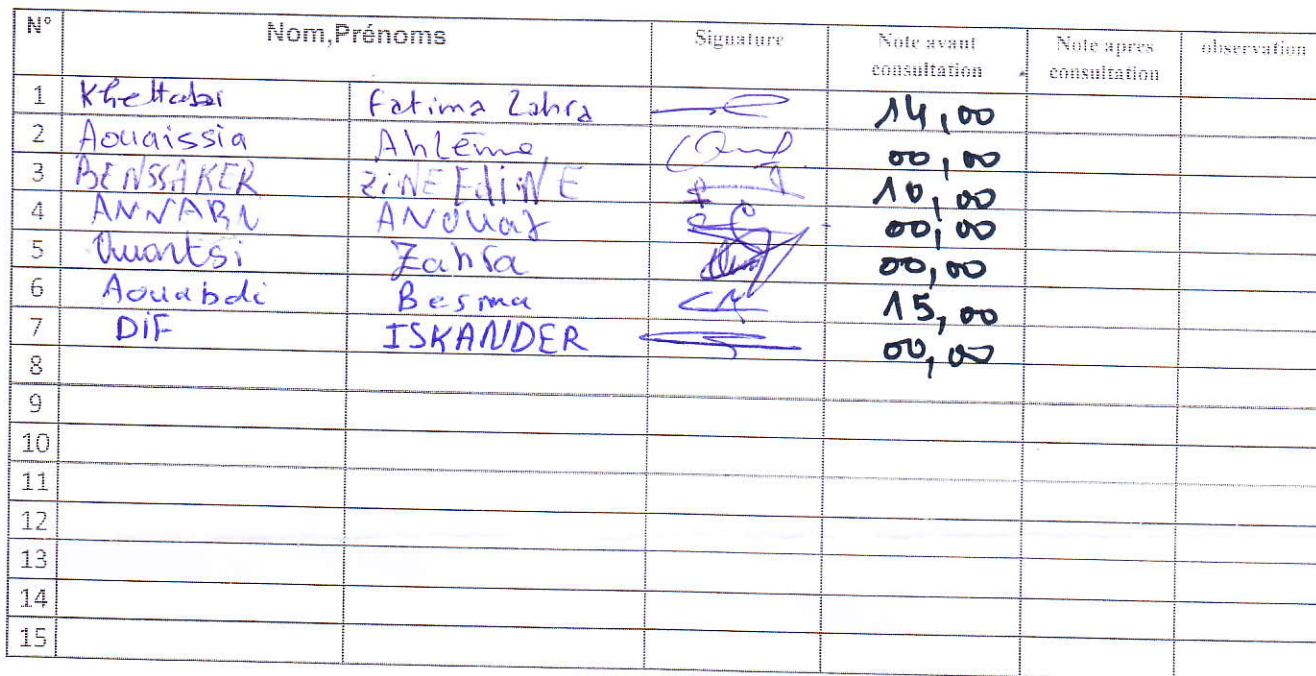 N° Nom,Prénoms Signature Note avant consultation Note apres consultation observation
1 Khettabi Fatima Zahra 14,00
2 Aouaissia Ahlème 00,00
3 BENSSAKER ZiNE EdiNE 10,00
4 ANNABI ANOUAR 00,00
5 Ouartsi Zahra 00,00
6 Aouabdi Besma 15,00
7 DiF ISKANDER 00,00
8
9
10
11
12
13
14
15